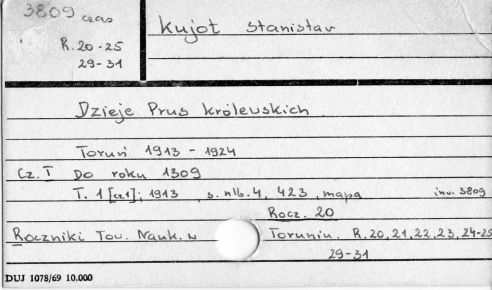 3809 czas
R. 20-25
29-31
Kujot Stanisław
Dzieje Prus Królewskich
Toruń 1913 - 1924
Cz. I Do roku 1309
T. 1 [cz1]; 1913, s. nlb. 4, 423, mapa inw. 3809
Rocz. 20
Roczniki Tow. Nauk. w Toruniu. R. 20, 21, 22, 23, 24-25
29-31
DUJ 1078/69 10.000